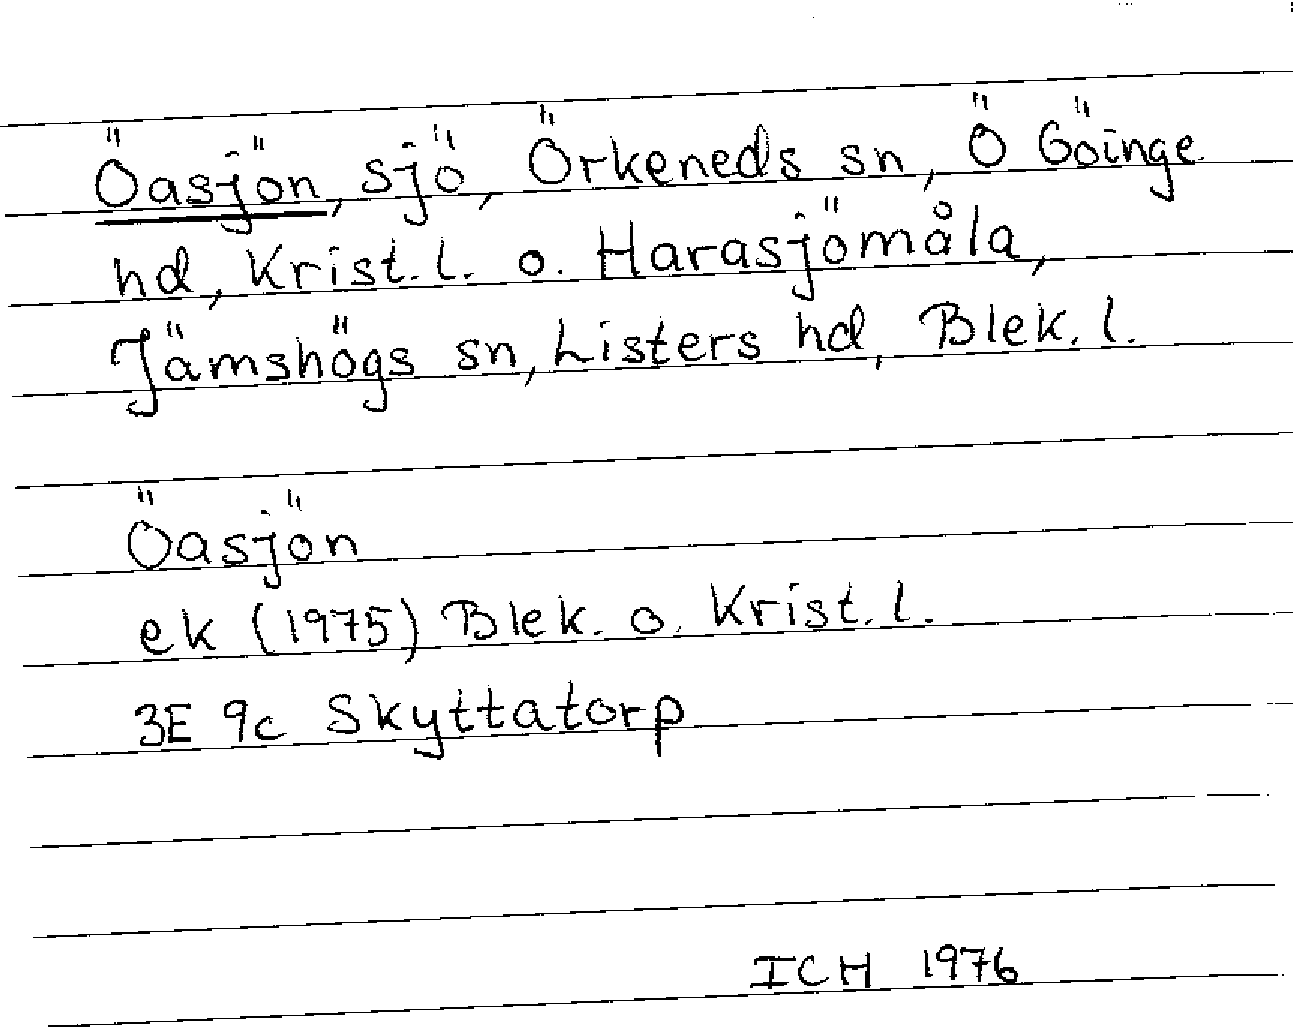 Öasjön, sjö, Örkeneds sn, Ö Göinge
hd, Krist. l. o. Harasjömåla,
Jämshögs sn, Listers hd, Blek. l.
Öasjön
ek (1975) Blek. o. Krist. l.
3E 9c Skyttatorp
ICH 1976